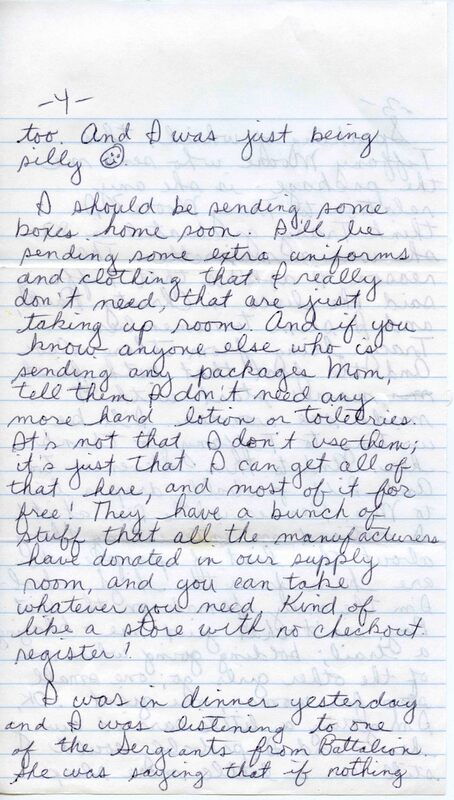 -4-
too. And I was just being
silly ☺.
I should be sending some
boxes home soon. I'll be
sending some extra uniforms
and clothing that I really
don't need, that are just
taking up room. And if you
know anyone else who is
sending any packages Mom,
tell them I don't need any
more hand lotion or toiletries.
It's not that I don't use them;
it's just that I can get all of
that here, and most of it for
free! They have a bunch of
stuff that all the manufacturers
have donated in our supply
room, and you can take
whatever you need. Kind of
like a store with no checkout
register!
I was in dinner yesterday
and I was listening to one
of the Sergiants from Battalion.
She was saying that if nothing